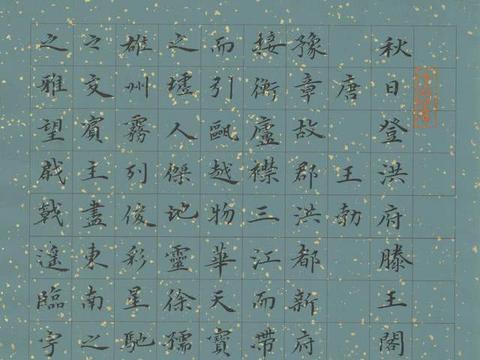 秋日登洪府滕王閣
唐王勃
豫章故郡洪都新府
接衡廬襟三江而帶
而引甌越物華天寶
之墟人傑地靈徐孺
雄州霧列俊彩星馳
之交賓主盡東南之
之雅望棨戟遙臨宇